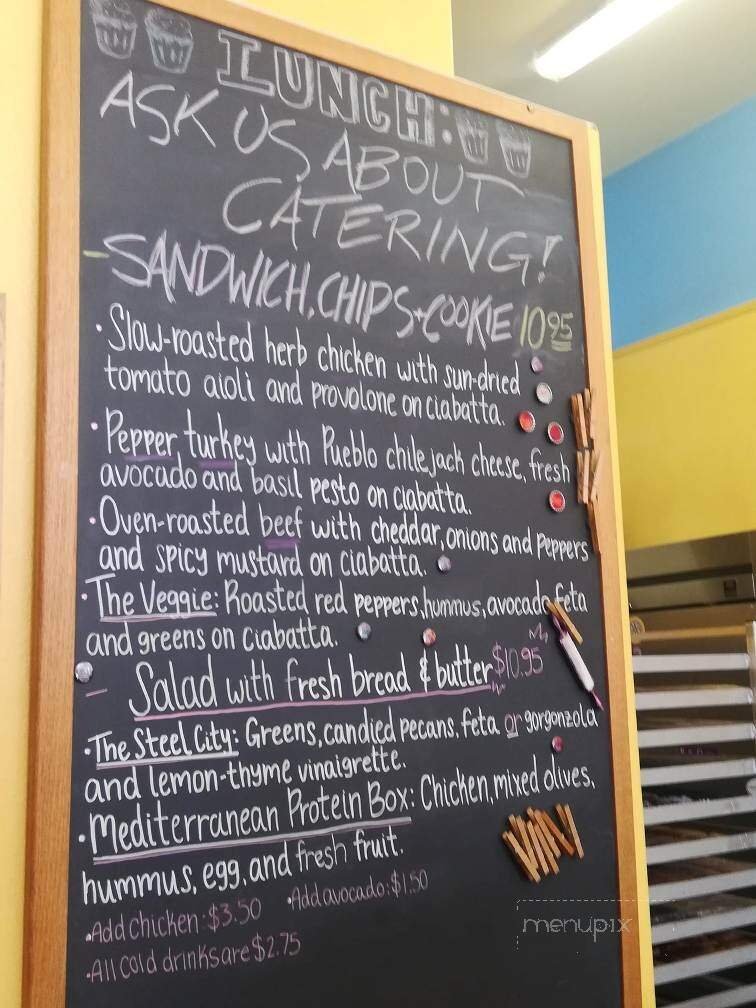 LUNCH:
ASK US ABOUT
CATERING!
- SANDWICH, CHIPS + COOKIE 10 95
• Slow-roasted herb chicken with sun-dried
tomato aioli and provolone on ciabatta.
• Pepper turkey with Pueblo chile jack cheese, fresh
avocado and basil pesto on ciabatta.
• Oven-roasted beef with cheddar, onions and peppers
and spicy mustard on ciabatta.
• The Veggie: Roasted red peppers, hummus, avocado, feta
and greens on ciabatta.
- Salad with fresh bread & butter $10.95
• The Steel City: Greens, candied pecans, feta or gorgonzola
and lemon-thyme vinaigrette.
• Mediterranean Protein Box: Chicken, mixed olives,
hummus, egg, and fresh fruit.
• Add chicken: $3.50 • Add avocado: $1.50
• All cold drinks are $2.75
menupix